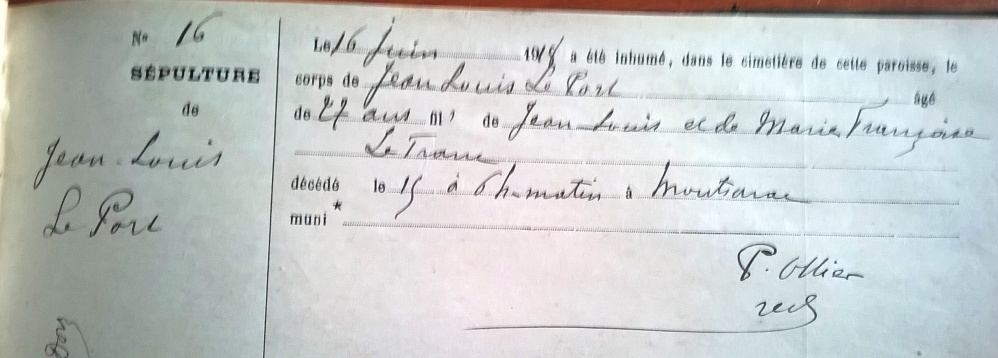 No 16
SÉPULTURE
de
Jean-Louis
Le Port
Le 16 Juin 1918 a été inhumé, dans le cimetière de cette paroisse, le
corps de Jean Louis Le Port âgé
de 27 ans fils de Jean Louis et de Marie Françoise
Le Franc
décédé le 15 à 6h matin à
muni *
P. Ollier
rect